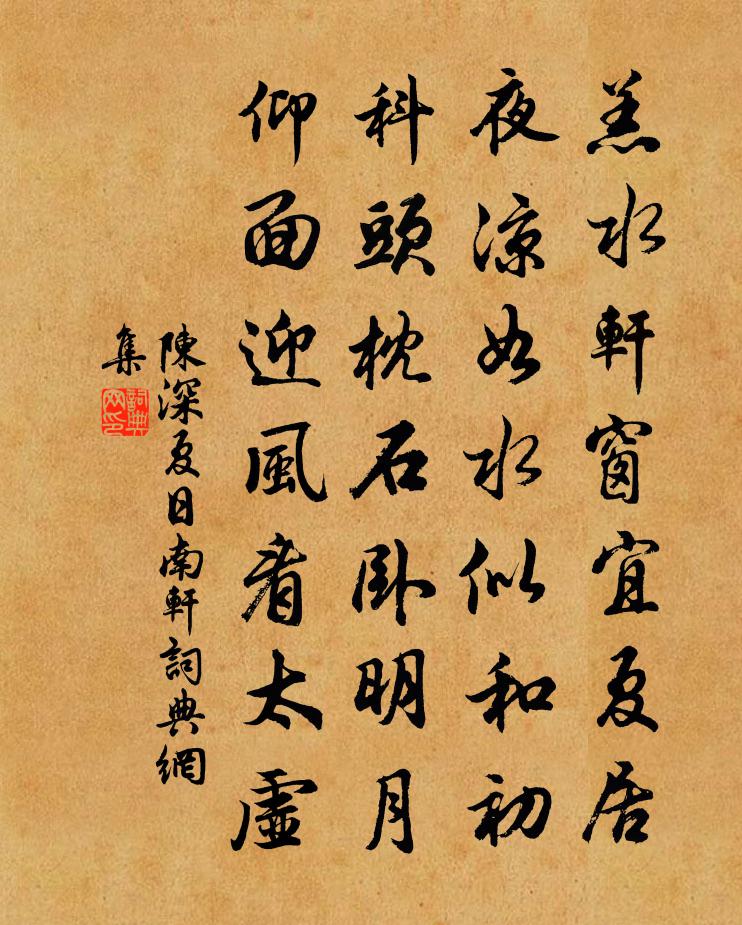 美水軒窗宜夏居
夜涼如水似和初
科頭枕石卧明月
仰面迎風看太虛
陳深夏日南軒詞典網
集
詞典
网印